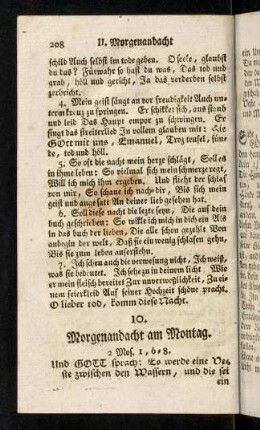 208 II. Morgenandacht
schild Auch selbst im tode geben. O seele, glaubst
du das? Fürwahr so hast du was, Das tod und
grab, höll und gericht, Ja das verderben selbst
zerbricht.
4. Mein geist fängt an vor freudigkeit Auch un-
term kreuz zu springen. Er schikket sich, aus staub
und leid Das Haupt empor zu schwingen. Er
singt das streiterlied In vollem glauben mit: Hie
GOtt mit uns, Emanuel, Troz teufel, sün-
de, tod und höll.
5. So oft die nacht mein herze schlägt, Soll es
in ihme leben: So vielmal sich mein schmerz regt,
Will ich mich ihm ergeben. Und flieht der schlaf
vor mir, So schaue ich nach dir, Bis sich mein
geist und angesicht An deiner lieb gesehen hat.
6. Soll diese nacht die lezte seyn, Die auf dein
buch geschrieben: So wikle ich mich in dich ein Als
in das buch der lieben, Die alle schon gezehlt Von
anbegin der welt, Daß sie ein wenig schlafen gehn,
Bis sie zum leben auferstehn.
7. Ich sehen auch die verwesung nicht, Ich weiß,
was sie bedeutet. Ich sehe zu in deinem licht Wie
er mein fleisch bereitet Zur unverweslichkeit, Zu ei-
nem feierkleid Auf seiner Hochzeit schöne pracht.
O lieber tod, komm diese Nacht.
10.
Morgenandacht am Montag.
2 Mos. 1, 6-8.
Und GOTT sprach: Es werde eine Ve-
ste zwischen den Wassern, und die sei
ein